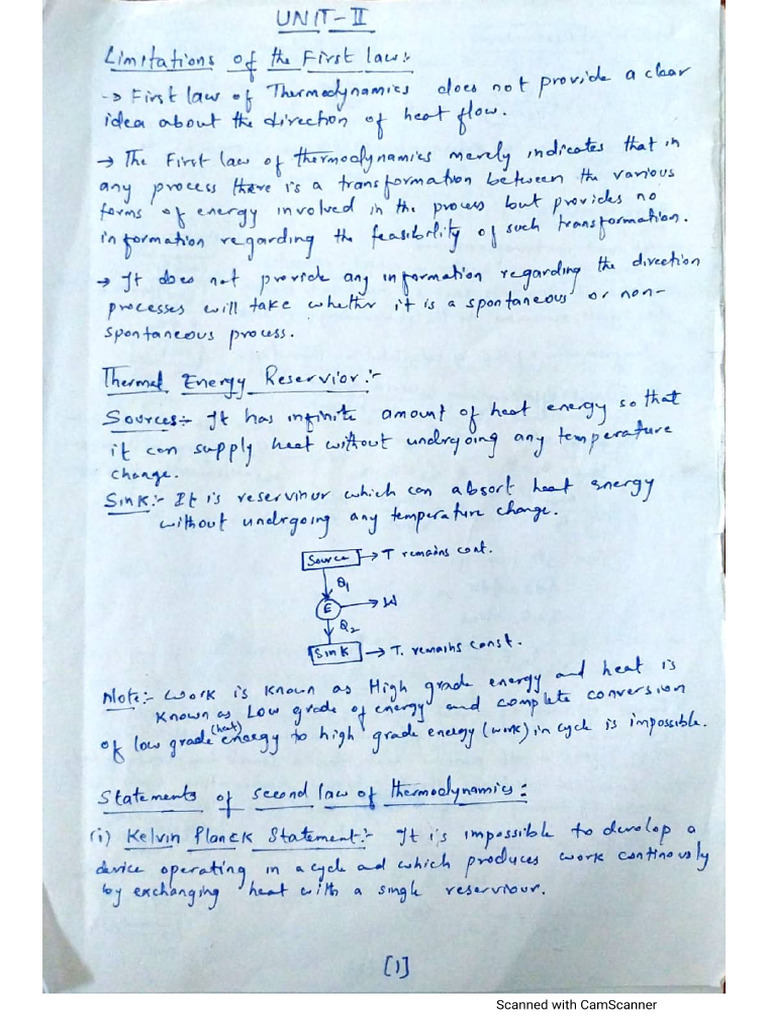 UNIT-II
Limitations of the First law:-
-> First law of Thermodynamics does not provide a clear
idea about the direction of heat flow.
→ The First law of thermodynamics merely indicates that in
any process there is a transformation between the various
forms of energy involved in the process but provides no
information regarding the feasibility of such transformation.
→ It does not provide any information regarding the direction
processes will take whether it is a spontaneous or non-
spontaneous process.
Thermal Energy Reservior:-
Sources:- It has infinite amount of heat energy so that
it can supply heat without undrgoing any temperature
change.
Sink:- It is reservinur which can absort heat energy
without undrgoing any temperature change.
Source → T remains cont.
Q1
E → W
Q2
Sink → T. remains const.
Note:- Work is known as High grade energy and heat is
known as Low grade of energy and complete conversion
of low grade (heat) energy to high grade energy (work) in cycle is impossible.
Statements of second law of thermodynamics:
(i) Kelvin Planck Statement:- It is impossible to develop a
device operating in a cycle ad which produces work continously
by exchanging heat with a single reserviour.
[1]
Scanned with CamScanner